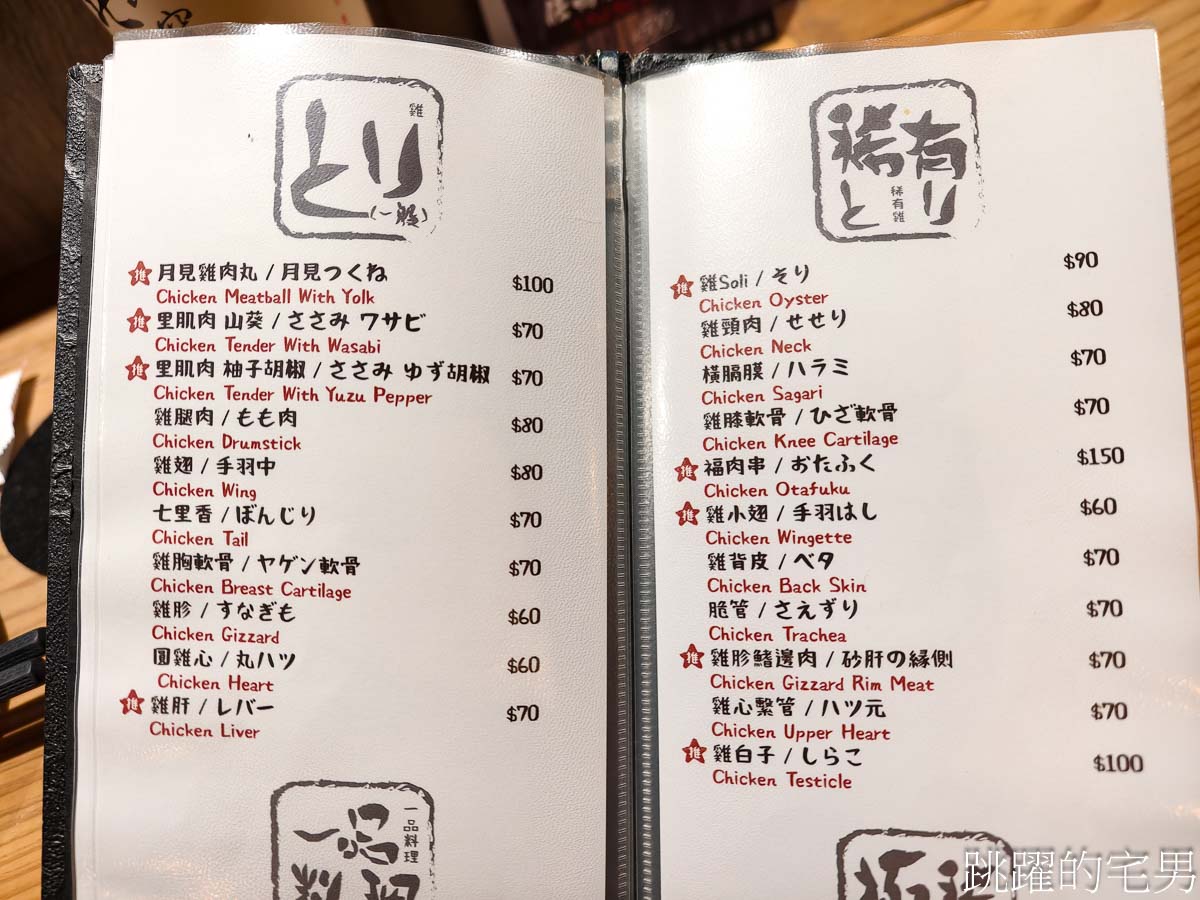 雞
とり
(一般)
推 月見雞肉丸 / 月見つくね $100
Chicken Meatball With Yolk
推 里肌肉 山葵 / ささみ ワサビ $70
Chicken Tender With Wasabi
推 里肌肉 柚子胡椒 / ささみ ゆず胡椒 $70
Chicken Tender With Yuzu Pepper
雞腿肉 / もも肉 $80
Chicken Drumstick
雞翅 / 手羽中 $80
Chicken Wing
七里香 / ぼんじり $70
Chicken Tail
雞胸軟骨 / ヤゲン軟骨 $70
Chicken Breast Cartilage
雞胗 / すなぎも $60
Chicken Gizzard
圓雞心 / 丸ハツ $60
Chicken Heart
推 雞肝 / レバー $70
Chicken Liver
一品料理
一品
料理
稀有
とり
稀有雞
推 雞Soli / そり $90
Chicken Oyster
雞頸肉 / せせり $80
Chicken Neck
橫膈膜 / ハラミ $70
Chicken Sagari
雞膝軟骨 / ひざ軟骨 $70
Chicken Knee Cartilage
推 福肉串 / おたふく $150
Chicken Otafuku
推 雞小翅 / 手羽はし $60
Chicken Wingette
雞背皮 / ベタ $70
Chicken Back Skin
脆管 / さえずり $70
Chicken Trachea
推 雞胗鰭邊肉 / 砂肝の縁側 $70
Chicken Gizzard Rim Meat
雞心繫管 / ハツ元 $70
Chicken Upper Heart
推 雞白子 / しらこ $100
Chicken Testicle
跳躍的宅男